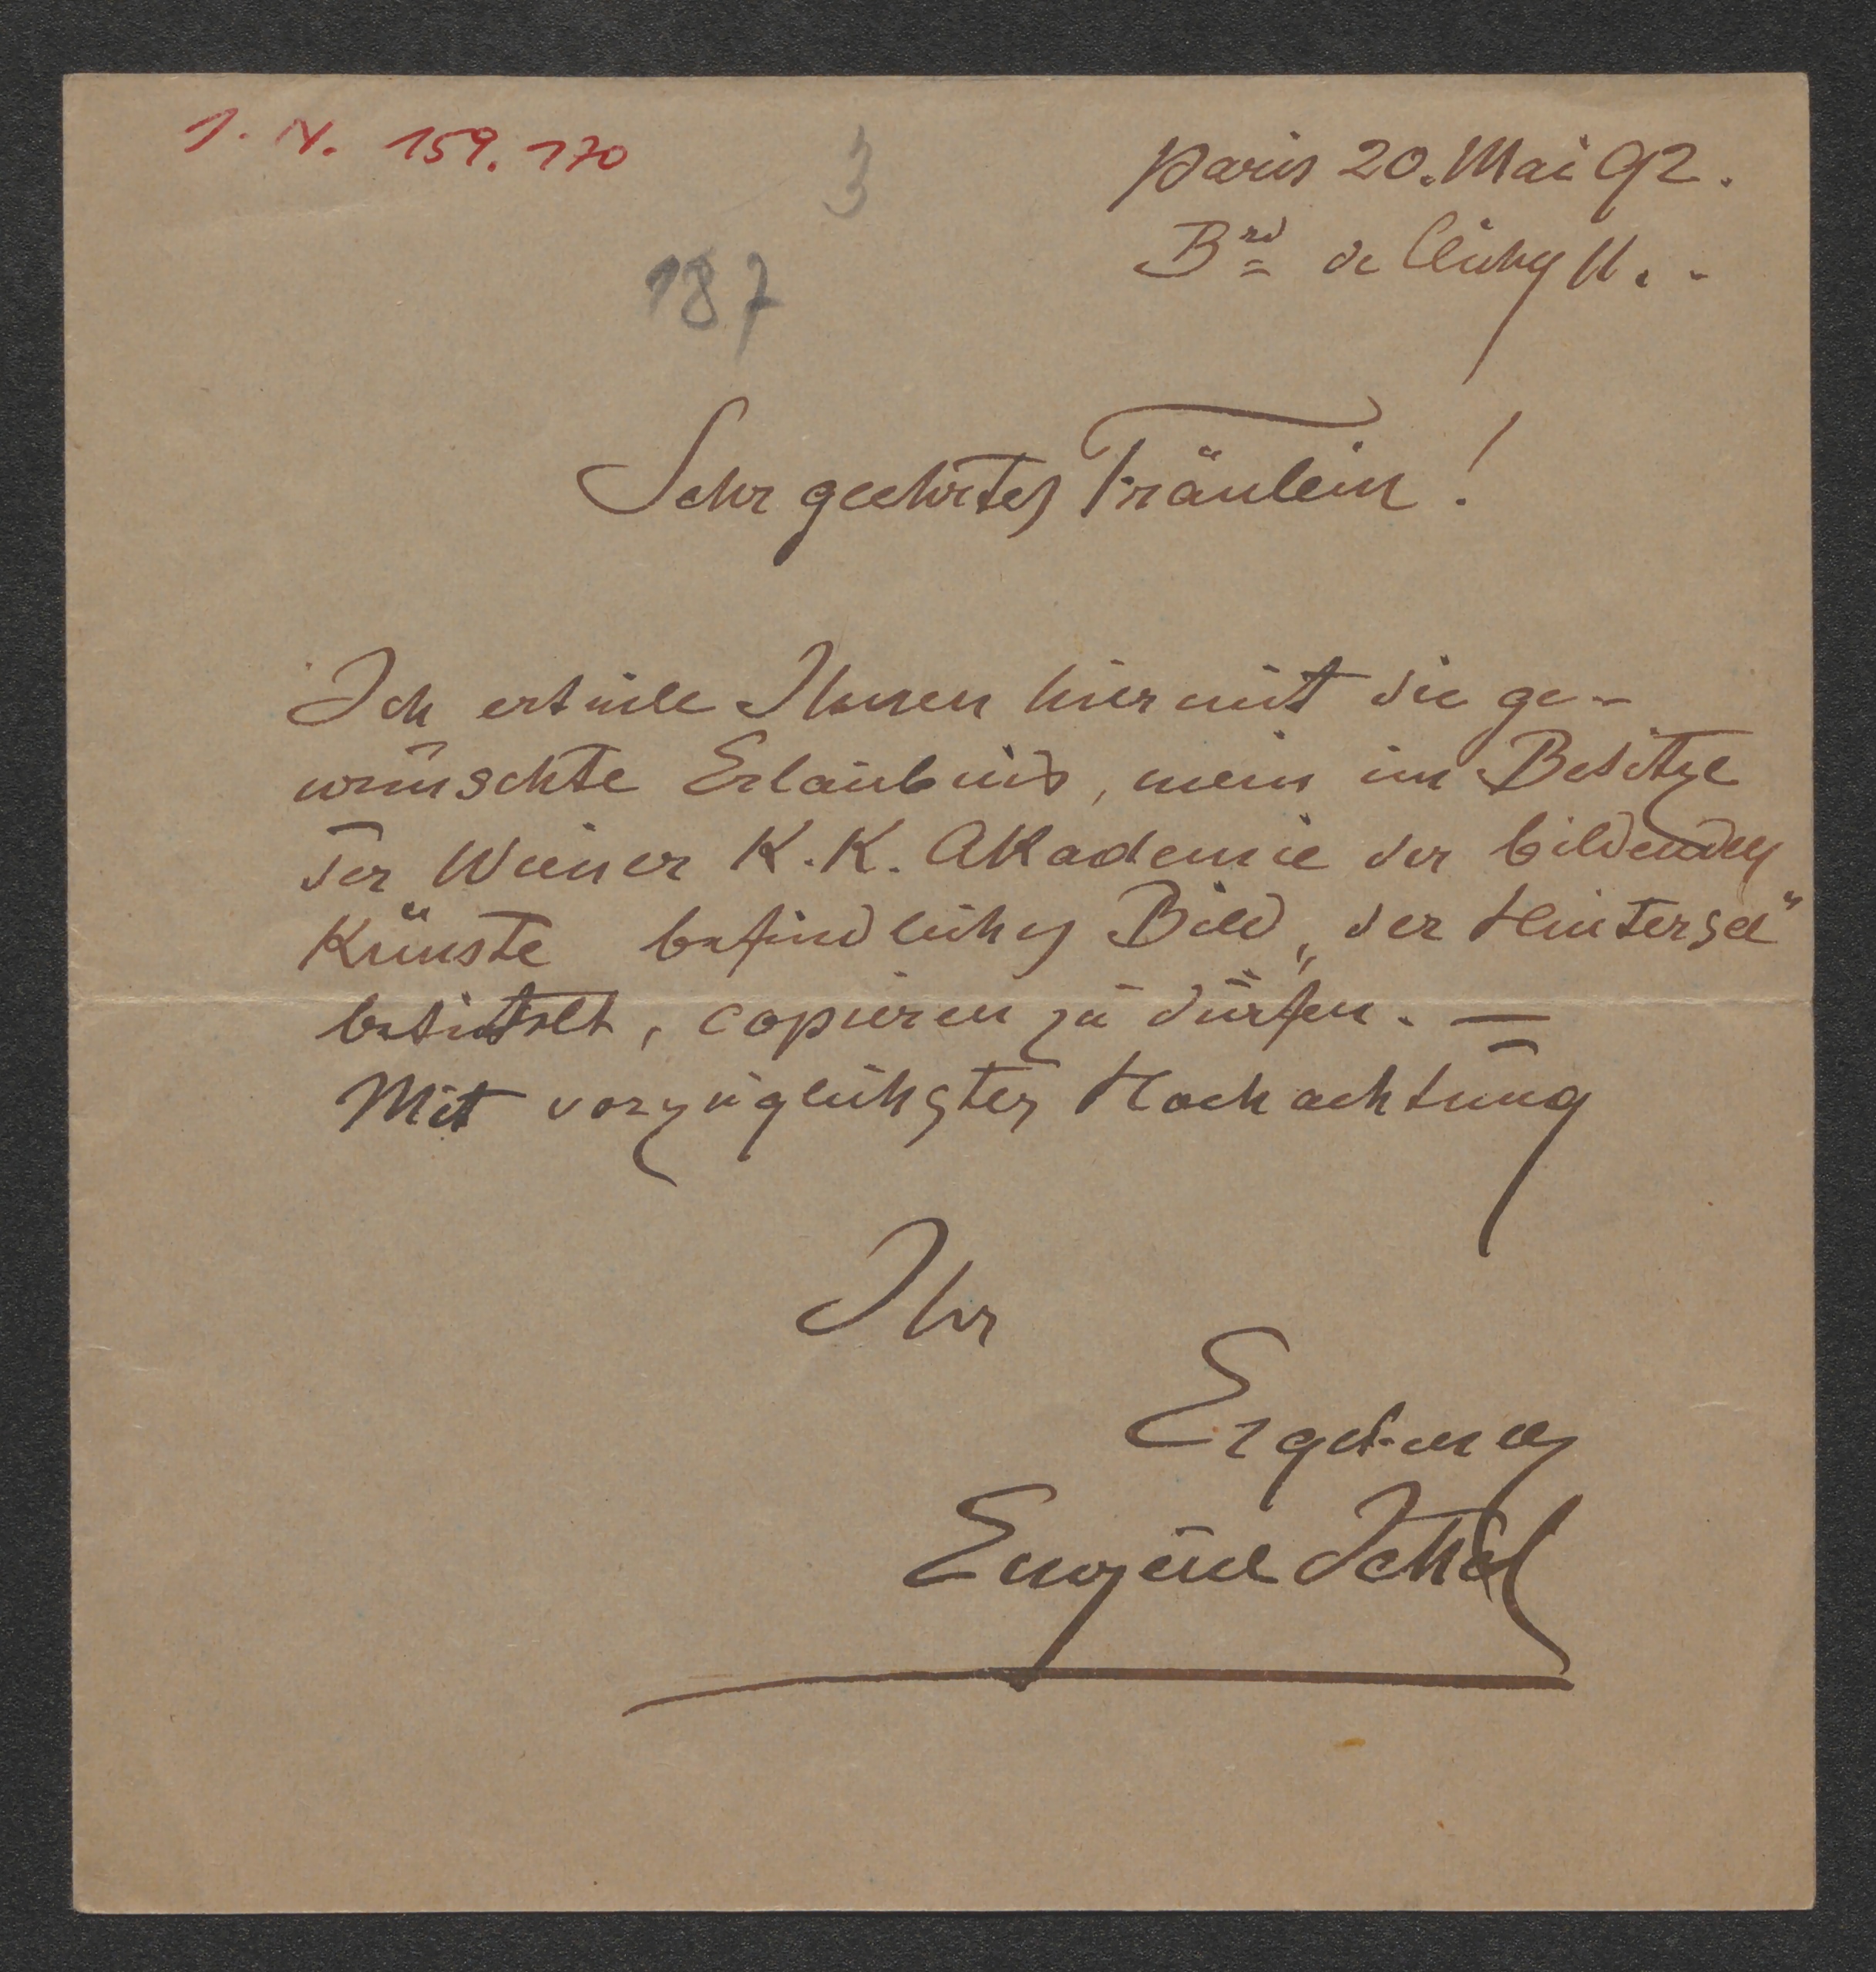 J. N. 159.170
3
187
Paris 20. Mai 92.
Brd de Clichy 11. -
Sehr geehrtes Fräulein!
Ich erteile Ihnen hiermit die ge-
wünschte Erlaubnis, mein im Besitze
der Wiener K.K. Akademie der bildenden
Künste befindliches Bild „der Hintersee“
betittelt, copieren zu dürfen. —
Mit vorzüglichster Hochachtung
Ihr
Ergebener
Eugène Jettel